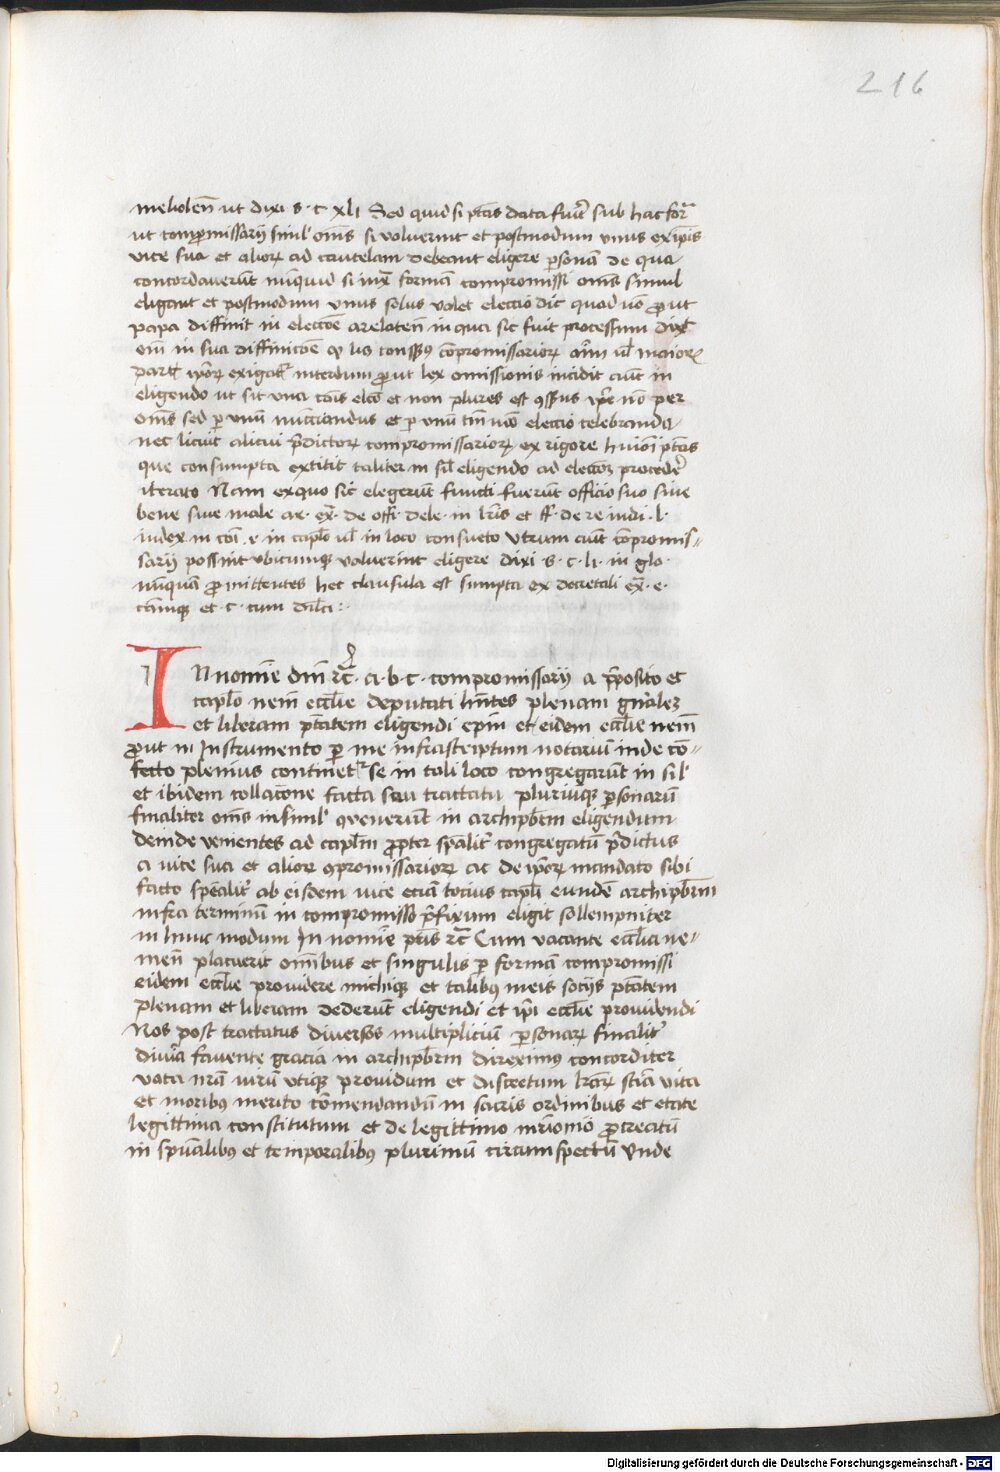 216
melioleñ ut dixi s · c xli Sed quid si ptās data fuit̄ sub hac forᵃ
ut compromissarij simul oēs si voluerint et postmodum unus ex ip̄is
vice sua et alioꝝ ad cautelam debeant eligere ꝑsonā de qua
concordauerūt nūquid si iux̄ formam compromissi om̄s simul
eligant et postmodum unus solus valet electio dic quod nō prout
papa diffinit in electōe arelateñ in qua sic fuit processum dix̄
em̄ in sua diffinicōe
partꝭ ip̄oꝝ exigatʳ interdum prout lex omissionis incidit cum in
eligendo ut sit una cōis elc̄o et non plures est
om̄s sed ꝑ unū nuncciandus et ꝑ unū tm̄ electio celebranda
nec licuit alicui p̄dictoꝝ compromissarioꝝ ex rigore huiōi ptās
que consumpta extitit taliter in sil̄ eligendo ad electōꝫ procedēr̄
iterato Nam exquo sic elegerūt functi fuerūt officio suo siue
bene siue male ar · ex̄ · de offi · dele · in lr̄is et ff · de re iudi · l ·
iudex in cōi · e · in capl̄o ul̄ in loco consueto Utrum aut̄ cōpromis-
sarij possint ubicumqꝫ voluerint eligere dixi s · c · li · in glo ·
nūquā promittentes hec clausula est sumpta ex decretali ex̄ · e ·
cūmqꝫ et · c · cum dil̄ci :·
In nomīe dm̄ r̄c · a · b · c · compromissarij a p̄posito et
capl̄o nem̄ eccl̄ie deputati hn̄tes plenam gn̄aleꝫ
et liberam ptātem eligendi ep̄m et eidem eccl̄ie nem̄
prout in Instrumento ꝑ me infrascriptum notariū inde cō-
fecto plenius continetʳ se in tali loco congregarūt in sil̄
et ibidem collacōne facta seu tractatu pluriūqꝫ ꝑsonarū
finaliter om̄s insimul ꝯuenerūt in archipb̄rm eligendum
deinde venientes ad capl̄m propter spāliter̄ congregatū p̄dictus
a vice sua et alioꝝ ꝯpromissarioꝝ ac de ip̄oꝝ mandato sibi
facto spēaliter̄ ab eisdem vice eciā tocius capl̄i eundē archipb̄rm
infra terminū in compromisso p̄fixum eligit sollempniter
in hunc modum In nomīe ptīs r̄c Cum vacante eccl̄ia ne-
meñ placuerit om̄ibus et singulis ꝑ formā compromissi
eidem eccl̄ie prouidere michiqꝫ et talibus meis socijs ptātem
plenam et liberam dederūt eligendi et ip̄i eccl̄ie prouidendi
Nos post tractatus diuersos multipliciū ꝑsonaꝝ finaliter̄
diuīa fauente gracia in archipb̄rm direximus concorditer
vota nr̄a virū utiqꝫ prouidum et discretum lr̄aꝝ sciā vita
et moribus merito cōmendandū in sacris ordinibus et etate
legittima constitutum et de legittimo mr̄īonio procreatū
in spūalibus et temporalibus plurimū circumspectū Unde
Digitalisierung gefördert durch die Deutsche Forschungsgemeinschaft - DFG